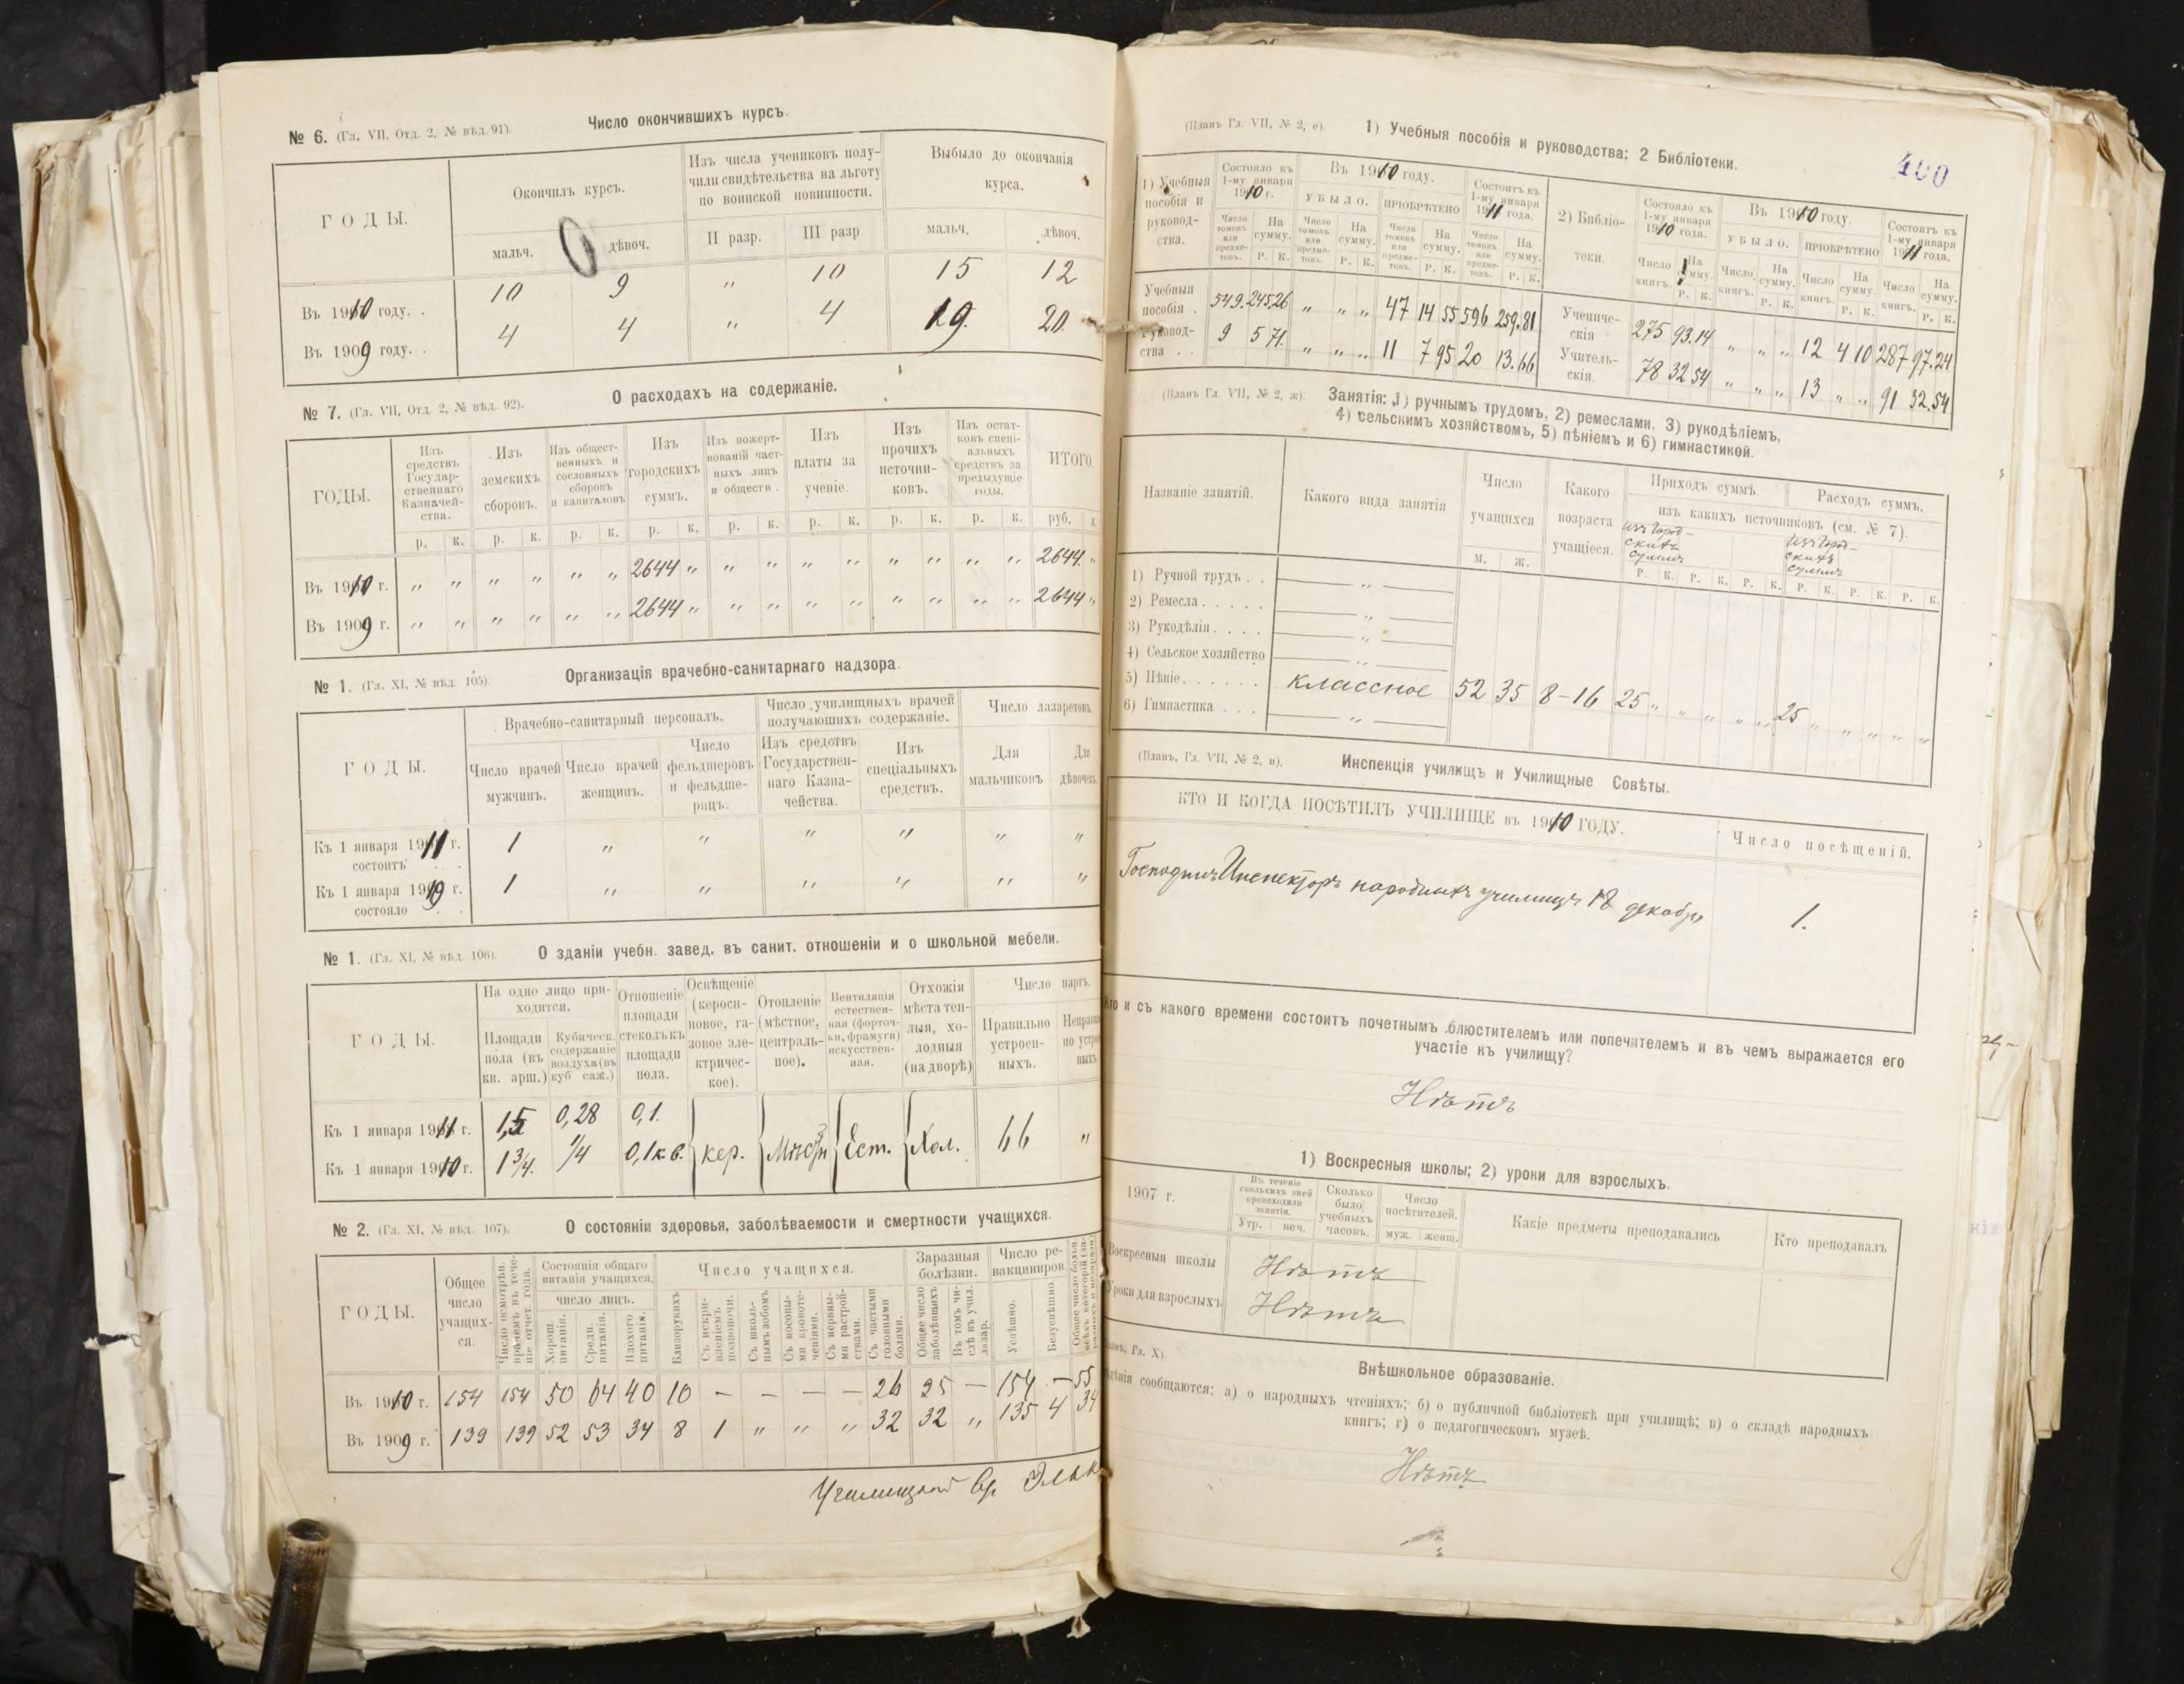 № 6. (Гл. VII, Отд. 2, № вѣд. 91).
Число окончившихъ курсъ.
ГОДЫ.
Окончилъ курсъ.
Изъ числа учениковъ полу-
чили свидѣтельства на льготу
по воинской повинности.
Выбыло до окончанія
курса.
мальч. дѣвоч. II разр. III разр. мальч. дѣвоч.
Въ 1910 году. . 10 9 „ 10 15 12
Въ 1909 году. . 4 4 „ 4 19. 20.
№ 7. (Гл. VII, Отд. 2, № вѣд. 92).
О расходахъ на содержаніе.
ГОДЫ.
Изъ
средствъ
Государ-
ственнаго
Казначей-
ства.
Изъ
земскихъ
сборовъ.
Изъ общест-
венныхъ и
сословныхъ
сборовъ
и капиталовъ
Изъ
городскихъ
суммъ.
Изъ пожерт-
вованій част-
ныхъ лицъ
и обществ.
Изъ
платы за
ученіе.
Изъ
прочихъ
источни-
ковъ.
Изъ остат-
ковъ спеці-
альныхъ
средствъ за
предыдущіе
годы.
ИТОГО.
р. к. р. к. р. к. р. к. р. к. р. к. р. к. р. к. руб. к
Въ 1910 г. „ „ „ „ „ „ 2644 „ „ „ „ „ „ „ „ „ 2644. „
Въ 1909 г. „ „ „ „ „ „ 2644 „ „ „ „ „ „ „ „ „ 2644 „
№ 1. (Гл. XI, № вѣд. 105).
Организація врачебно-санитарнаго надзора.
ГОДЫ.
Врачебно-санитарный персоналъ.
Число училищныхъ врачей
получающихъ содержаніе.
Число лазаретовъ.
Число врачей
мужчинъ.
Число врачей
женщинъ.
Число
фельдшеровъ
и фельдше-
рицъ.
Изъ средствъ
Государствен-
наго Казна-
чейства.
Изъ
спеціальныхъ
средствъ.
Для
мальчиковъ
Для
дѣвочекъ
Къ 1 января 1911 г.
состоитъ . . 1 „ „ „ „ „ „
Къ 1 января 1910 г.
состояло . . 1 „ „ „ „ „ „
№ 1. (Гл. XI, № вѣд. 106).
О зданіи учебн. завед. въ санит. отношеніи и о школьной мебели.
ГОДЫ.
На одно лицо при-
ходится.
Площади
пола (въ
кв. арш.)
Кубическ.
содержаніе
воздуха (въ
куб саж.)
Отношеніе
площади
стеколъ къ
площади
пола.
Освѣщеніе
(кероси-
новое, га-
зовое эле-
ктричес-
кое).
Отопленіе
(мѣстное,
централь-
ное).
Вентиляція
естествен-
ная (форточ-
ки, фрамуги)
искусствен-
ная.
Отхожія
мѣста теп-
лыя, хо-
лодныя
(на дворѣ)
Число партъ.
Правильно
устроен-
ныхъ.
Къ 1 января 1911 г. 1,5 0,28 0,1.
Къ 1 января 1910 г. 1 3/4. 1/4 0,1 кв. кер. Ест. Хол. 66 „
№ 2. (Гл. XI, № вѣд. 107).
О состояніи здоровья, заболѣваемости и смертности учащихся.
ГОДЫ.
Общее
число
учащих-
ся.
Число осмотрѣн.
врачемъ въ тече-
ніе отчет. года.
Состоянія общаго
питанія учащихся.
число лицъ.
Хорош.
питанія.
Средн.
питанія.
Плохого
питанія.
Число учащихся.
Близорукихъ
Съ искри-
вленіемъ
позвоночн.
Съ школь-
нымъ зобомъ
Съ носовы-
ми кровоте-
ченіями.
Съ нервны-
ми растрой-
ствами.
Съ частыми
головными
болями.
Заразныя
болѣзни.
Общее число
заболѣвшихъ
Въ томъ чи-
слѣ въ учил.
лазар.
Число ре-
вакциниров.
Успѣшно.
Безуспѣшно.
Въ 1910 г. 154 154 50 64 40 10 — — — — 26 25 — 154 — 55
Въ 1909 г. 139 139 52 53 34 8 1 „ „ „ 32 32 „ 135 4 34
Училищный Вр.
400
(Планъ Гл. VII, № 2, е).
1) Учебныя пособія и руководства; 2 Библіотеки.
1) Учебныя
пособія и
руковод-
ства.
Состояло къ
1-му января
1910 г.
Въ 1910 году.
УБЫЛО. ПРІОБРѢТЕНО
Состоитъ къ
1-му января
1911 года.
Число
томовъ
или
предме-
товъ.
На
сумму.
Р. К.
Число
томовъ
или
предме-
товъ.
На
сумму.
Р. К.
Число
томовъ
или
предме-
товъ.
На
сумму.
Р. К.
Число
томовъ
или
предме-
товъ.
На
сумму.
Р. К.
2) Библіо-
теки.
Состояло къ
1-му января
1910 года.
Въ 1910 году.
УБЫЛО. ПРІОБРѢТЕНО
Состоитъ къ
1-му января
1911 года.
Число
книгъ.
На
сумму.
Р. К.
Число
книгъ.
На
сумму.
Р. К.
Число
книгъ.
На
сумму.
Р. К.
Число
книгъ.
На
сумму.
Р. К.
Учебныя
пособія . 549. 245 26 „ „ „ 47 14 55 596 259. 81
Руковод-
ства . . 9 5 71. „ „ „ 11 7 95 20 13. 66
Учениче-
скія 275 93. 14 „ „ „ 12 4 10 287 97. 24
Учитель-
скія. 78 32 54 „ „ „ 13 „ „ 91 32. 54
(Планъ Гл. VII, № 2, ж).
Занятія: 1) ручнымъ трудомъ, 2) ремеслами, 3) рукодѣліемъ,
4) сельскимъ хозяйствомъ, 5) пѣніемъ и 6) гимнастикой.
Названіе занятій.
Какого вида занятія
Число
учащихся
м. ж.
Какого
возраста
учащіеся.
Приходъ суммъ. Расходъ суммъ.
изъ какихъ источниковъ (см. № 7).
Изъ Город-
скихъ
суммъ
Изъ Город-
скихъ
суммъ
Р. К. Р. К. Р. К. Р. К. Р. К. Р. К.
1) Ручной трудъ . . — „ —
2) Ремесла . . . . . — „ —
3) Рукодѣлія . . . . — „ —
4) Сельское хозяйство — „ —
5) Пѣніе . . . . . . классное 52 35 8-16 25 „ „ „ „ „ 25 „ „ „ „ „
6) Гимнастика . . . — „ —
(Планъ, Гл. VII, № 2, и).
Инспекція училищъ и Училищные Совѣты.
КТО И КОГДА ПОСѢТИЛЪ УЧИЛИЩЕ въ 1910 ГОДУ.
Число посѣщеній.
Господинъ Инспекторъ народныхъ училищъ декабря
1.
Кто и съ какого времени состоитъ почетнымъ блюстителемъ или попечителемъ и въ чемъ выражается его
участіе къ училищу?
Нѣтъ
1) Воскресныя школы; 2) уроки для взрослыхъ.
1907 г.
Въ теченіе
сколькихъ дней
происходили
занятія.
Утр. веч.
Сколько
было
учебныхъ
часовъ.
Число
посѣтителей.
муж. женщ.
Какіе предметы преподавались
Кто преподавалъ
Воскресныя школы Нѣтъ
Уроки для взрослыхъ Нѣтъ
Гл. X).
Внѣшкольное образованіе.
сообщаются: а) о народныхъ чтеніяхъ; б) о публичной библіотекѣ при училищѣ; в) о складѣ народныхъ
книгъ; г) о педагогическомъ музеѣ.
Нѣтъ